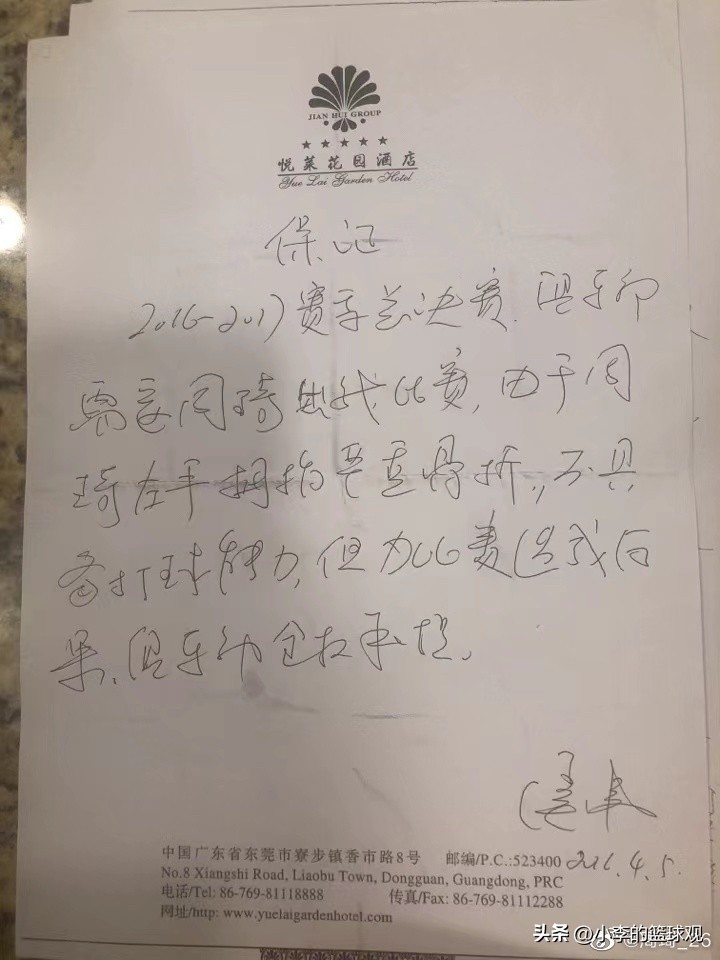 JIAN HUI GROUP
★★★★★
悦莱花园酒店
Yue Lai Garden Hotel
保证
2016-2017赛季总决赛,俱乐部
需要周琦出战比赛,由于周
琦左手拇指严重骨折,不具
备打球能力,但为比赛造成后
果,俱乐部全权承担。
中国广东省东莞市寮步镇香市路8号 邮编/P.C.:523400
No.8 Xiangshi Road, Liaobu Town, Dongguan, Guangdong, PRC
电话/Tel: 86-769-81118888 传真/Fax: 86-769-81112288
网址/http: www.yuelaigardenhotel.com
头条 @小李的篮球观